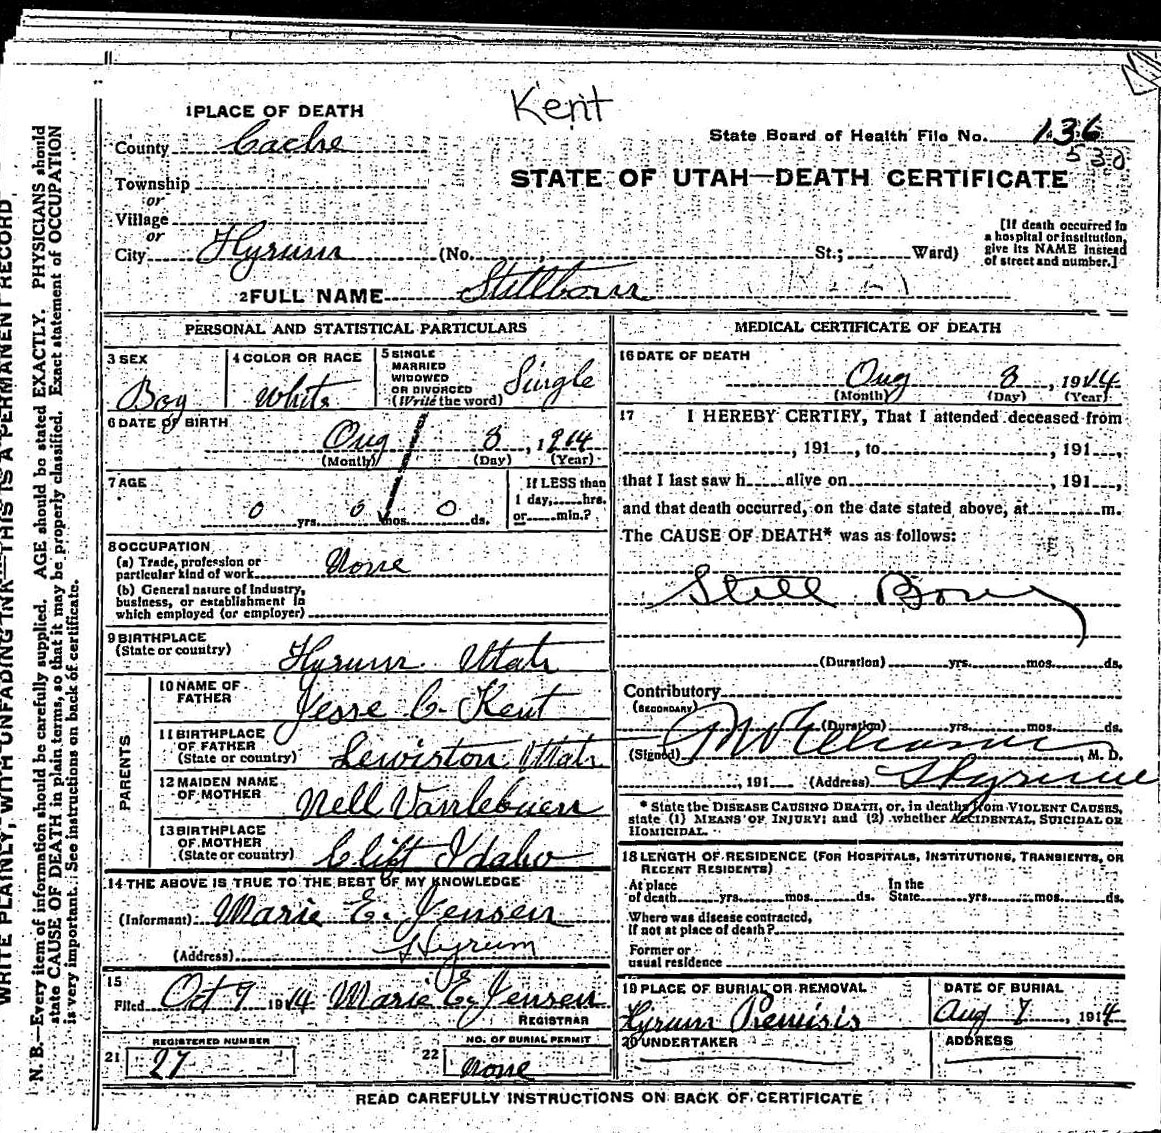 Kent
1 PLACE OF DEATH
County Cache
State Board of Health File No. 136
538
STATE OF UTAH—DEATH CERTIFICATE
Township
or
Village
or
City Hyrum (No. , St.; Ward)
[If death occurred in a hospital or institution, give its NAME instead of street and number.]
2 FULL NAME Stillborn
PERSONAL AND STATISTICAL PARTICULARS
3 SEX
Boy
4 COLOR OR RACE
White
5 SINGLE MARRIED WIDOWED OR DIVORCED (Write the word)
Single
6 DATE OF BIRTH
Aug 8, 1914
(Month) (Day) (Year)
7 AGE
0 yrs. 0 mos. 0 ds.
If LESS than 1 day, hrs. or min.?
8 OCCUPATION
(a) Trade, profession or particular kind of work None
(b) General nature of Industry, business, or establishment in which employed (or employer)
9 BIRTHPLACE
(State or country) Hyrum Utah
PARENTS
10 NAME OF FATHER
Jesse C. Kent
11 BIRTHPLACE OF FATHER (State or country)
Lewiston Utah
12 MAIDEN NAME OF MOTHER
Nell
13 BIRTHPLACE OF MOTHER (State or country)
Clift Idaho
14 THE ABOVE IS TRUE TO THE BEST OF MY KNOWLEDGE
(Informant) Marie E. Jensen
(Address) Hyrum
15
Filed Oct 9 1914 Marie E. Jensen
REGISTRAR
21 REGISTERED NUMBER
27
22 NO. OF BURIAL PERMIT
None
MEDICAL CERTIFICATE OF DEATH
16 DATE OF DEATH
Aug 8, 1914
(Month) (Day) (Year)
17 I HEREBY CERTIFY, That I attended deceased from
, 191 , to , 191 ,
that I last saw h alive on , 191 ,
and that death occurred, on the date stated above, at m.
The CAUSE OF DEATH* was as follows:
Still Born
(Duration) yrs. mos. ds.
Contributory
(SECONDARY)
(Duration) yrs. mos. ds.
(Signed) , M. D.
, 191 (Address) Hyrum
* State the DISEASE CAUSING DEATH, or, in deaths from VIOLENT CAUSES,
state (1) MEANS OF INJURY; and (2) whether ACCIDENTAL, SUICIDAL OR
HOMICIDAL.
18 LENGTH OF RESIDENCE (FOR HOSPITALS, INSTITUTIONS, TRANSIENTS, OR
RECENT RESIDENTS)
At place of death yrs. mos. ds. In the State yrs. mos. ds.
Where was disease contracted,
If not at place of death?
Former or
usual residence
19 PLACE OF BURIAL OR REMOVAL
Hyrum Premisis
DATE OF BURIAL
Aug 7, 1914
20 UNDERTAKER
ADDRESS
READ CAREFULLY INSTRUCTIONS ON BACK OF CERTIFICATE
WRITE PLAINLY, WITH UNFADING INK—THIS IS A PERMANENT RECORD
N. B.—Every item of information should be carefully supplied. AGE should be stated EXACTLY. PHYSICIANS should
state CAUSE OF DEATH in plain terms, so that it may be properly classified. Exact statement of OCCUPATION
is very important. See instructions on back of certificate.